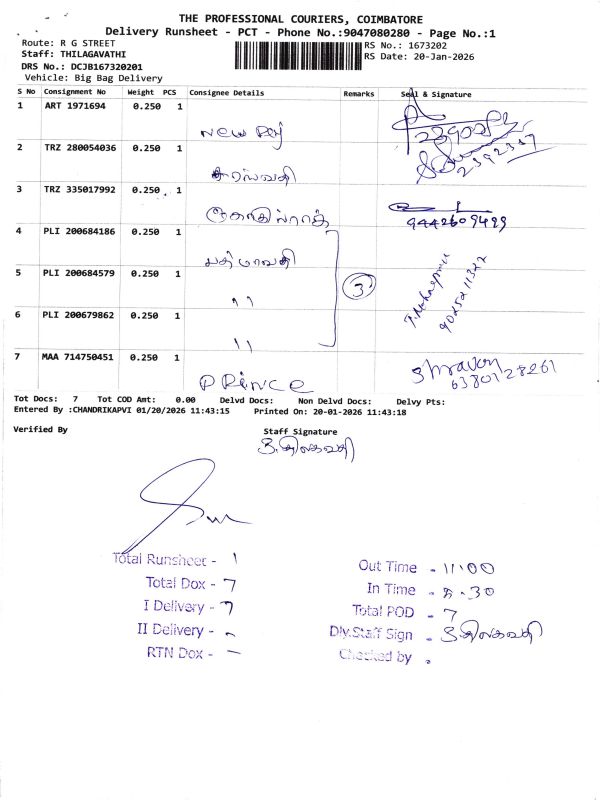 THE PROFESSIONAL COURIERS, COIMBATORE
Delivery Runsheet - PCT - Phone No.:9047080280 - Page No.:1
Route: R G STREET
RS No.: 1673202
Staff: THILAGAVATHI
RS Date: 20-Jan-2026
DRS No.: DCJB167320201
Vehicle: Big Bag Delivery
S No Consignment No Weight PCS Consignee Details Remarks Seal & Signature
1 ART 1971694 0.250 1
2 TRZ 280054036 0.250 1
சரஸ்வதி
3 TRZ 335017992 0.250 1
9442609499
4 PLI 200684186 0.250 1
பத்மாவதி
5 PLI 200684579 0.250 1
" 3
6 PLI 200679862 0.250 1
"
7 MAA 714750451 0.250 1
PRINCE Shravan
6380128261
Tot Docs: 7 Tot COD Amt: 0.00 Delvd Docs: Non Delvd Docs: Delvy Pts:
Entered By :CHANDRIKAPVI 01/20/2026 11:43:15 Printed On: 20-01-2026 11:43:18
Verified By Staff Signature
த.திலகவதி
Total Runsheet - 1
Total Dox - 7
I Delivery - 7
II Delivery - -
RTN Dox - -
Out Time - 11.00
In Time - 5.30
Total POD - 7
Dlv.Staff Sign - த.திலகவதி
Checked by -